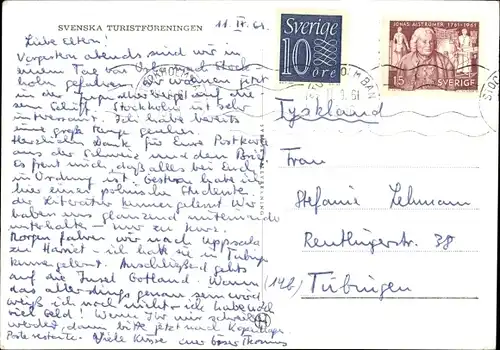 SVENSKA TURISTFÖRENINGEN
11. IV. 61.
Liebe Eltern!
Vorgestern abends sind wir in
einem Tag von
gefahren. Wir wohnen jetzt
in der Jugendherberge auf
ein Schiff. Stockholm ist sehr
interessant. Ich habe bereits
eine große Menge gesehen.
Herzlichen Dank für Eure Postkarte
aus der Schweiz und den Brief.
Es freut mich, daß alles bei Euch
in Ordnung ist. Gestern habe ich
hier einen polnischen Studenten
der Literatur kennengelernt. Wir
haben uns glänzend miteinander
unterhalten – nur zu kurz.
Morgen fahren wir nach Uppsala
zu Harriet – ich hatte sie in Tübingen
kennengelernt. Anschließend gehts
auf die Insel Gotland. Wann
das allerdings genau sein wird
weiß ich noch nicht – ich habe noch
viel Geld! Wenn Ihr mir schreiben
werdet, dann bitte jetzt nach Kopenhagen
Poste restante. Viele Küsse Euer Thomas
Sverige
10
öre
JONAS ALSTRÖMER 1761-1961
15
SVERIGE
Tyskland
Frau
Stefanie Lehmann
Reutlingerstr. 38
(14b) Tübingen